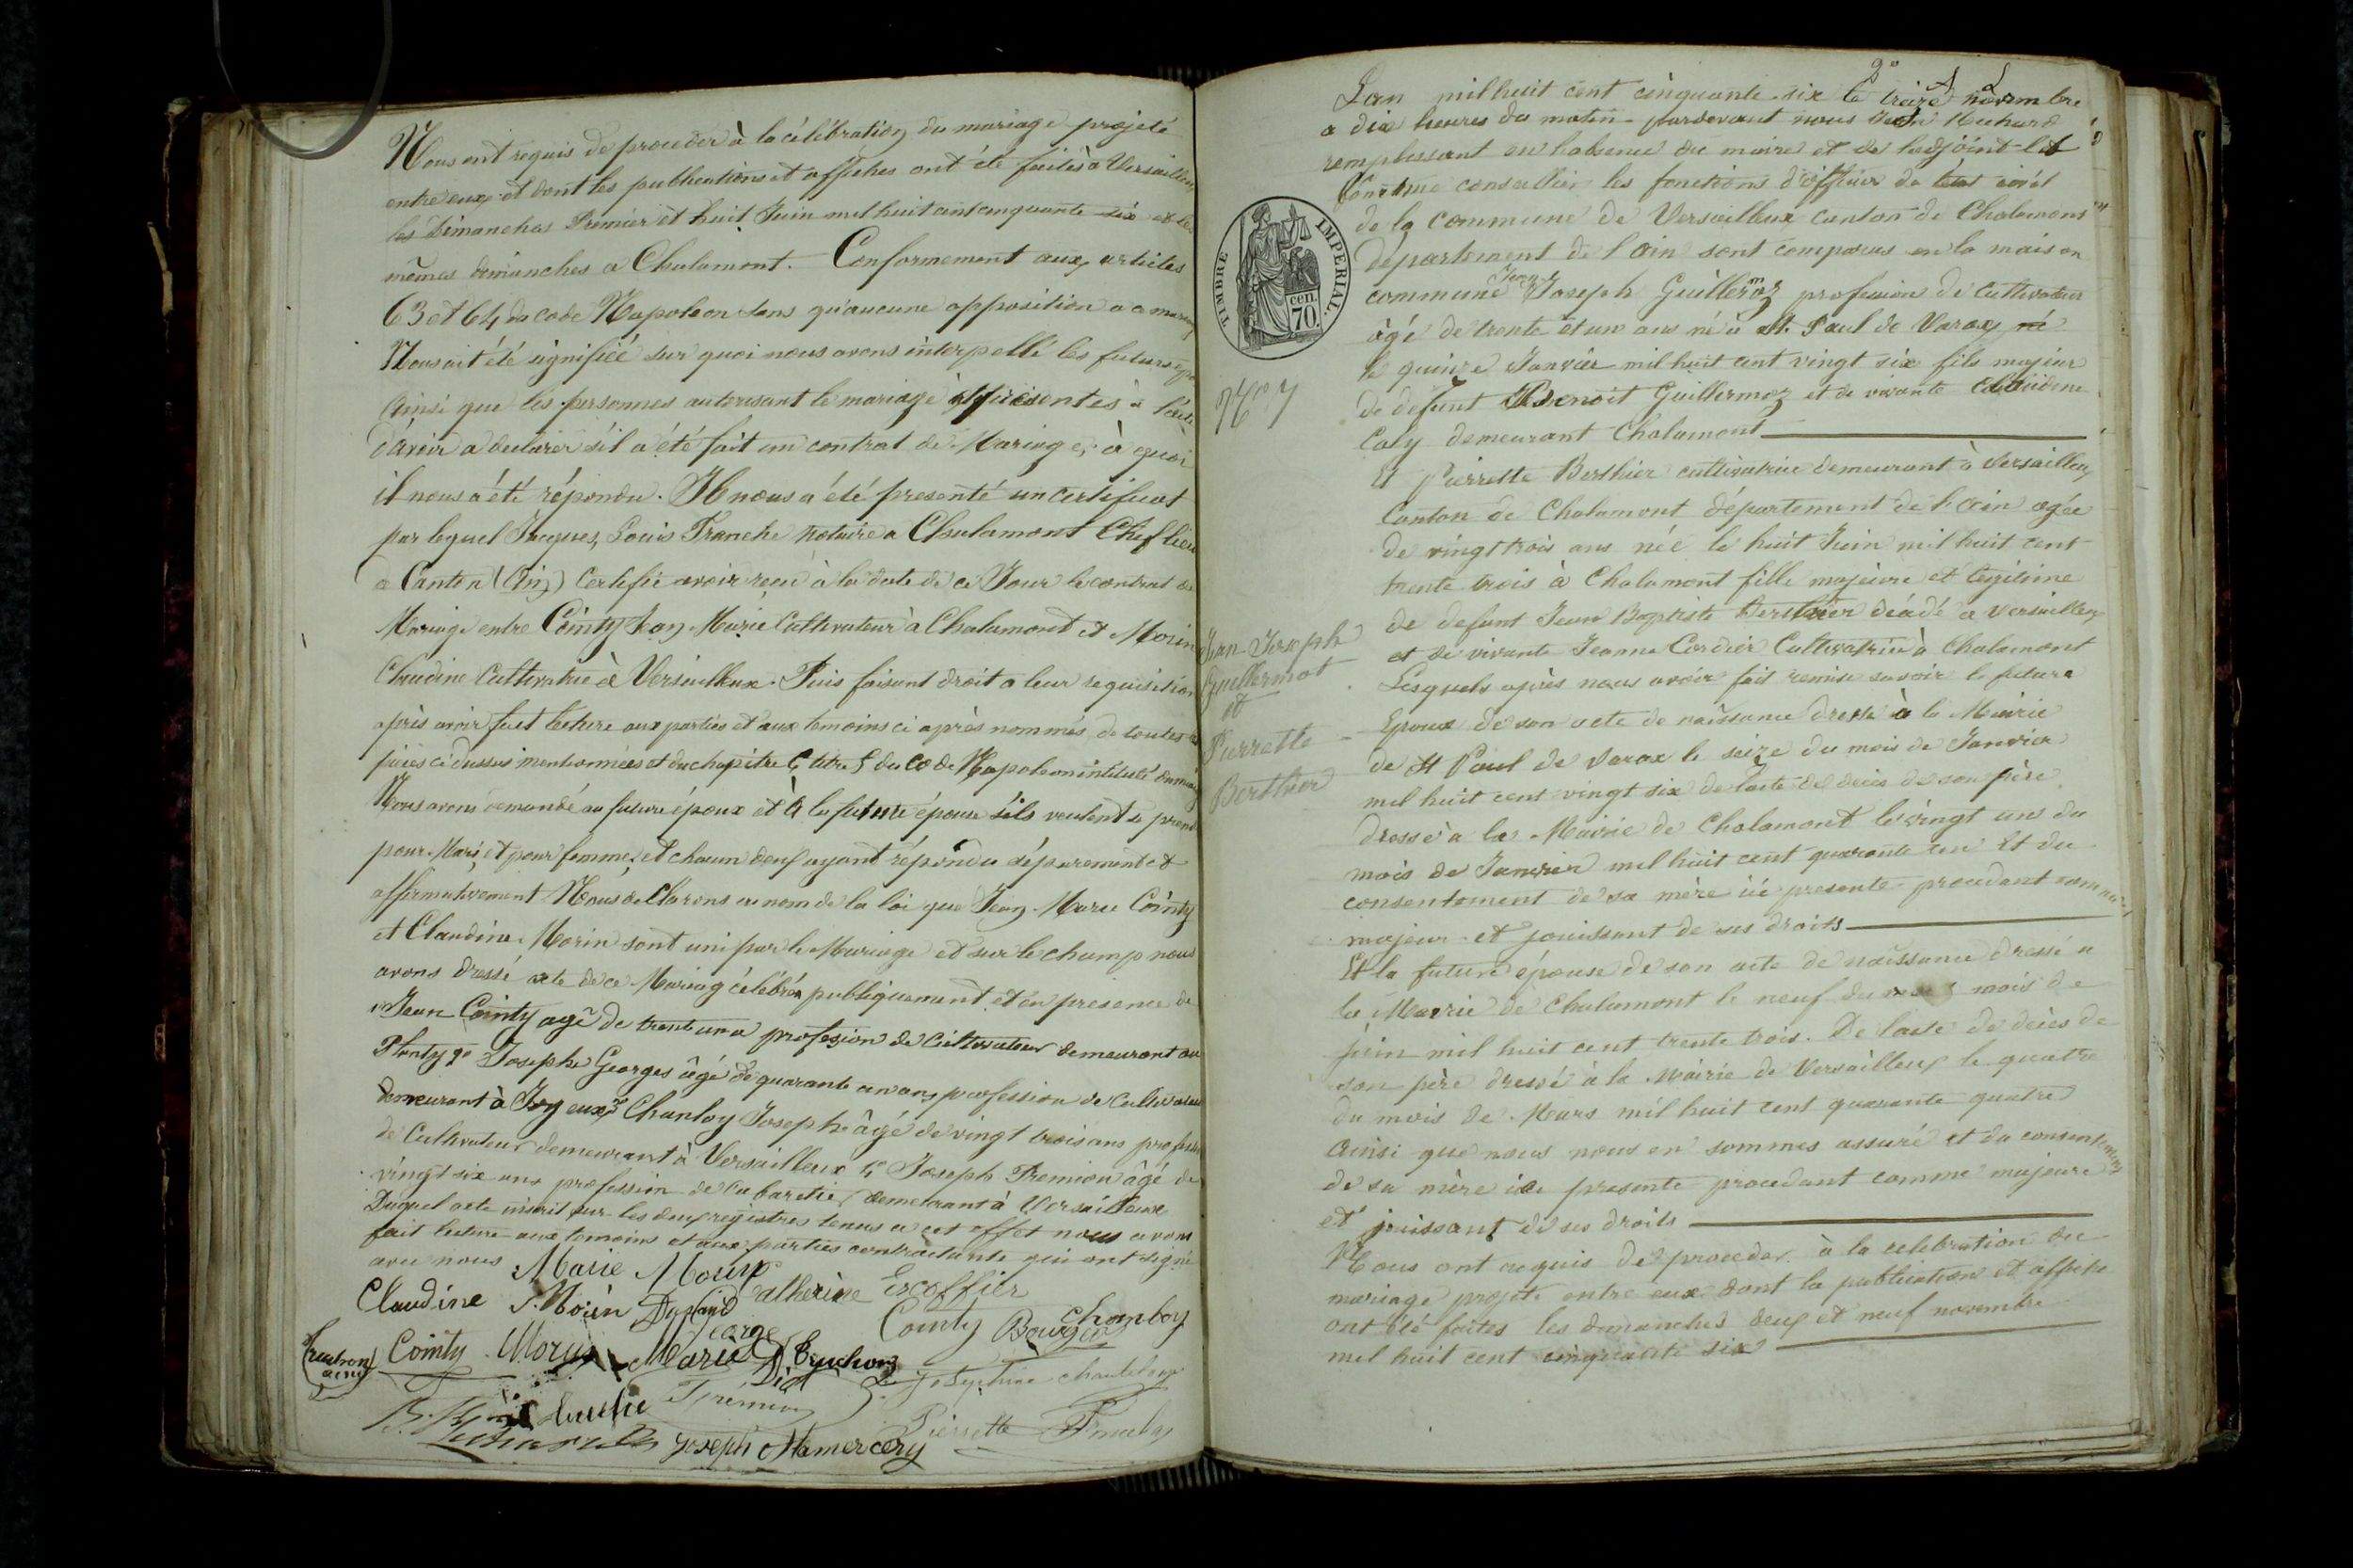 Nous ont requis de proceder à la célébration du mariage projeté
entre eux et dont les publications et affiches ont été faites à Versailleux
les Dimanches Premier et huit Juin mil huit cent cinquante six et les
mêmes dimanches a Chalamont. Conformement aux articles
63 et 64 du code Napoleon sans qu'aucune opposition a ce mariage
Nous ait été signifiée sur quoi nous avons interpellé les futurs
Ainsi que les personnes autorisant le mariage présentes à
d'avoir a declarer s'il a été fait un contrat de Mariage, à quoi
il nous a été répondu. Il nous a été presenté un certificat
par lequel Jacques, Louis Franche notaire a Chalamont Chef lieu
a Canton (Ain) Certifie avoir reçu à la date de ce Jour le contrat de
Mariage entre Cointy Jean Marie Cultivateur à Chalamont et Morin
Claudine Cultivatrice à Versailleux. Puis faisant droit a leur requisition
après avoir fait lecture aux parties et aux temoins ci après nommés de toutes les
pièces ci dessus mentionnées et du chapitre 6 titre 5 du Code Napoleon intitulé du
Nous avons demandé au future époux et à la future épouse s'ils veulent se prendre
pour Mari, et pour femme, et chacun deux ayant répondu séparement et
affirmativement Nous declarons au nom de la loi que Jean Marie Cointy
et Claudine Morin sont uni par le Mariage et sur le champ nous
avons dressé acte de ce Mariag célébré publiquement et en presence de
Jean Cointy agé de trente un a profession de Cultivateur demeurant au
Plonty 2o Joseph Georges âgé de quarante un ans profession de Cultivateur
demeurant à Joyeux 3 Chanloy Joseph âgé de vingt trois ans profession
de Cultivateur demeurant à Versailleux 4o Joseph Premion âgé de
vingt six ans profession de Cabaretier demeurant à Versailleux
Duquel acte inscrit sur les deux registres tenus a cet effet nous avons
fait lecture aux temoins et aux parties contractante qui ont signé
avec nous Marie Morin
Claudine Morin Catherine Escoffier
George Cointy Bourgeois Chanloy
Cointy Morin Marie Truchon
Josephine
Pierrette
Joseph Mamercery
No 7
TIMBRE IMPERIAL.
70 cen.
Jean Joseph
Guillermot
et
Pierrette
Berthier
L'an mil huit cent cinquante six le treize novembre
a dix heures du matin pardevant nous Jean Richard
remplissant en l'absence du maire et de l'adjoint
Comme conseiller les fonctions d'officier de l'état civil
de la commune de Versailleux canton de Chalamont
département de l'ain sont comparus en la maison
commune Jean Joseph Guillermoz profession de Cultivateur
âgé de trente et un ans né à St Paul de Varax né
le quinze Janvier mil huit cent vingt six fils majeur
de defunt Benoit Guillermoz et de vivante Claudine
Caty demeurant Chalamont
Et Pierrette Berthier cultivatrice demeurant à Versailleux
Canton de Chalamont département de l'ain agée
de vingt trois ans née le huit Juin mil huit cent
trente trois à Chalamont fille majeure et legitime
de defunt Jean Baptiste Berthier décédé a Versailleux
et de vivante Jeanne Cordier Cultivatrice à Chalamont
Lesquels après nous avoir fait remise savoir le future
Epoux de son acte de naissance dressé à la Mairie
de St Paul de Varax le seize du mois de Janvier
mil huit cent vingt six de l'acte de décès de son père
dressé a la Mairie de Chalamont le vingt un du
mois de Janvier mil huit cent quarante un Et du
consentement de sa mère ici presente procedant comme
majeur et jouissant de ses droits
Et la future épouse de son acte de naissance dressé a
la Mairie de Chalamont le neuf du mois de
juin mil huit cent trente trois. De l'acte de décès de
son père dressé à la Mairie de Versailleux le quatre
du mois de Mars mil huit cent quarante quatre
Ainsi que nous nous en sommes assuré et du consentement
de sa mère ici presente procedant comme majeure
et jouissant de ses droits
Nous ont requis de proceder à la celebration du
mariage projeté entre eux dont la publication et affiche
ont été faites les dimanches deux et neuf novembre
mil huit cent cinquante six